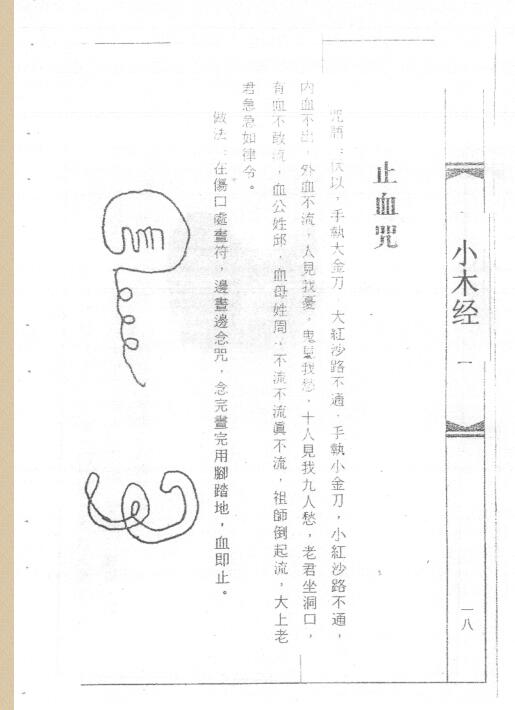 小木经
一
一八
止血咒
咒語：伏以，手執大金刀，大紅沙路不通，手執小金刀，小紅沙路不通，
内血不出，外血不流，人見我憂，鬼見我愁，十人見我九人愁，老君坐洞口，
有血不敢流，血公姓邱，血母姓周，不流不流眞不流，祖師倒起流，大上老
君急急如律令。
做法：在傷口處畫符，邊畫邊念咒，念完畫完用腳踏地，血即止。